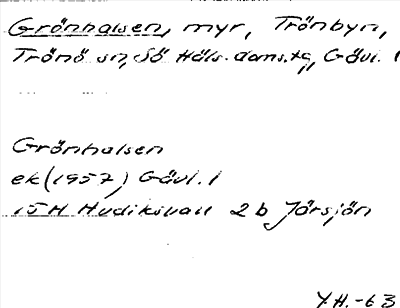 Grönhalsen, myr, Trönbyn,
Trönö sn, Sö Häls. doms.tg, Gävl. l
Grönhalsen
ek (1957) Gävl. l
15 H Hudiksvall 2 b Järsjön
Y.H. -63